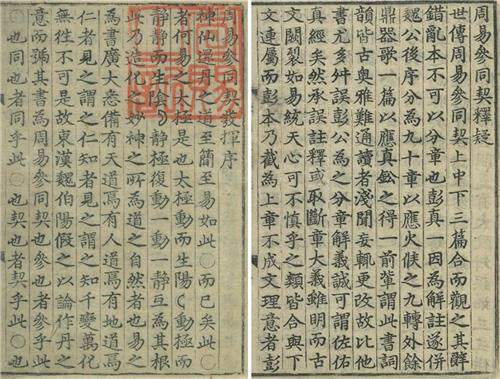 周易參同契釋疑
世傳周易參同契上中下三篇合而觀之其辭
錯亂本不可以分章也彭真一因為解註遂併
魏公後序分為九十章以應火候之九轉外餘
鼎器歌一篇以應真鈆之得一前輩謂此書詞
韻皆古奧雅難通讀者淺聞妄輒更改故比他
書尤多舛誤彭公為之分章解義誠可謂佐佑
真經矣然承誤註釋或取斷章大義雖明而古
文闊裂如易統天心可不慎乎之類皆合與下
文連屬而彭本乃截為上章不成文理意者彭
周易參同契發揮序
神仙還丹之道至簡至易如此〇而已矣此〇
者何易之太極是也太極動而生陽(動極而
靜靜而生陰)靜極復動一動一靜互為其根
此乃造化之妙神之所為道之自然者也易之
為書廣大悉備有天道焉有人道焉有地道焉
仁者見之謂之仁知者見之謂之知千變萬化
無往不可是故東漢魏伯陽假之以論作丹之
意而號其書為周易參同契也參也者參乎此
〇也同也者同乎此〇也契也者契乎此〇也